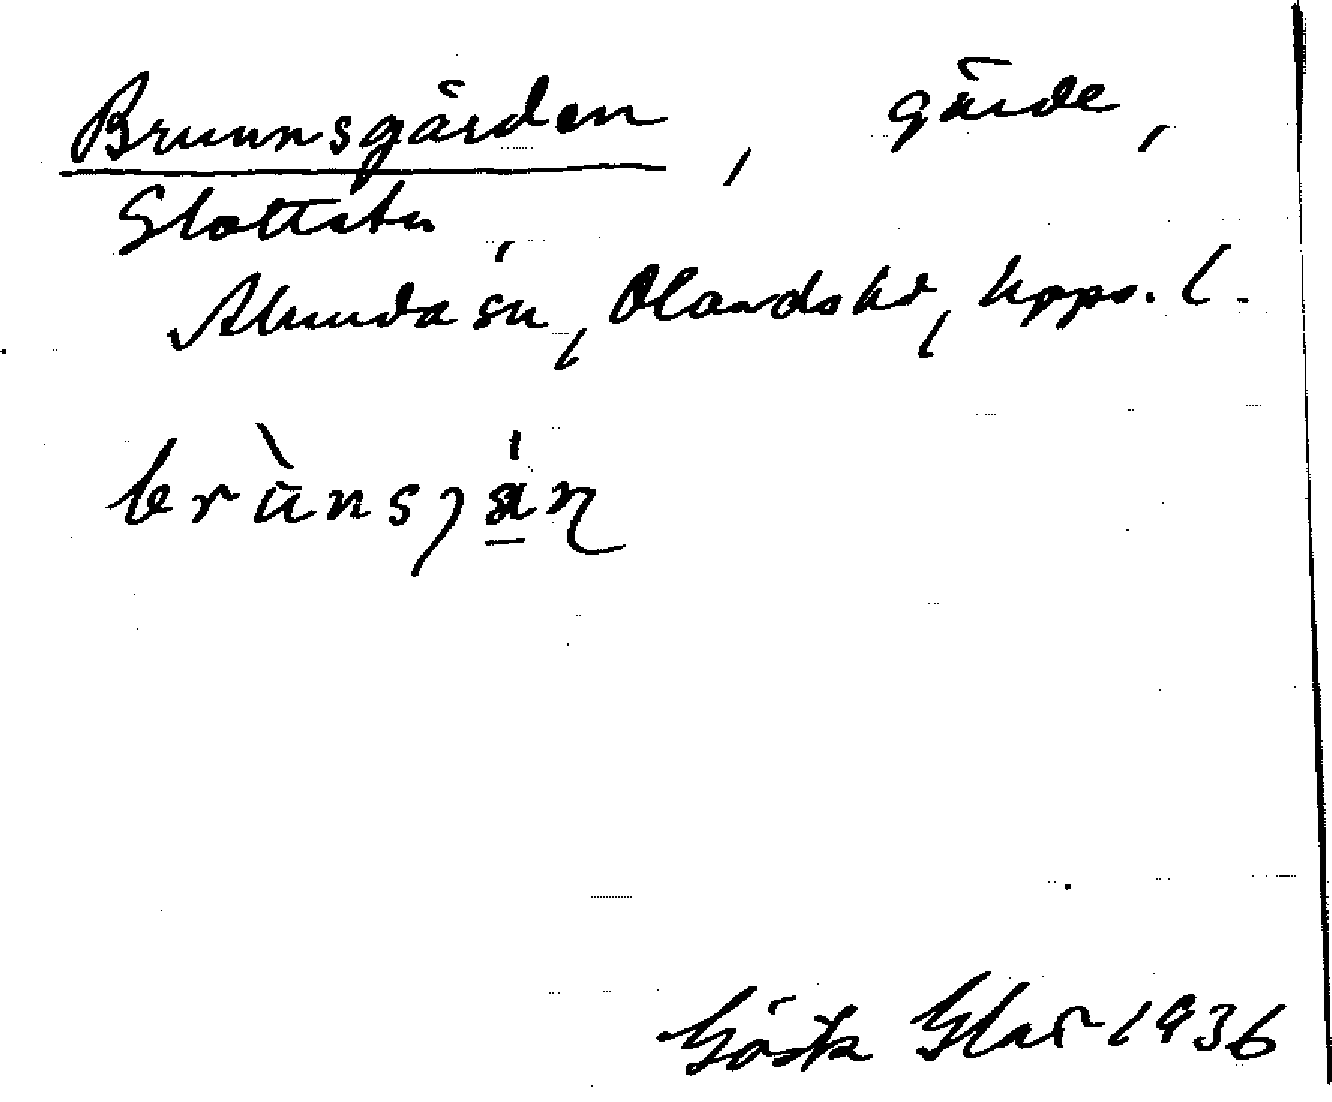 Brunnsgärden, gärde,
Slottsta,
Alunda sn, Olands hd, Upps. l.
brùnsjä́ṇ
Gösta Glas 1936